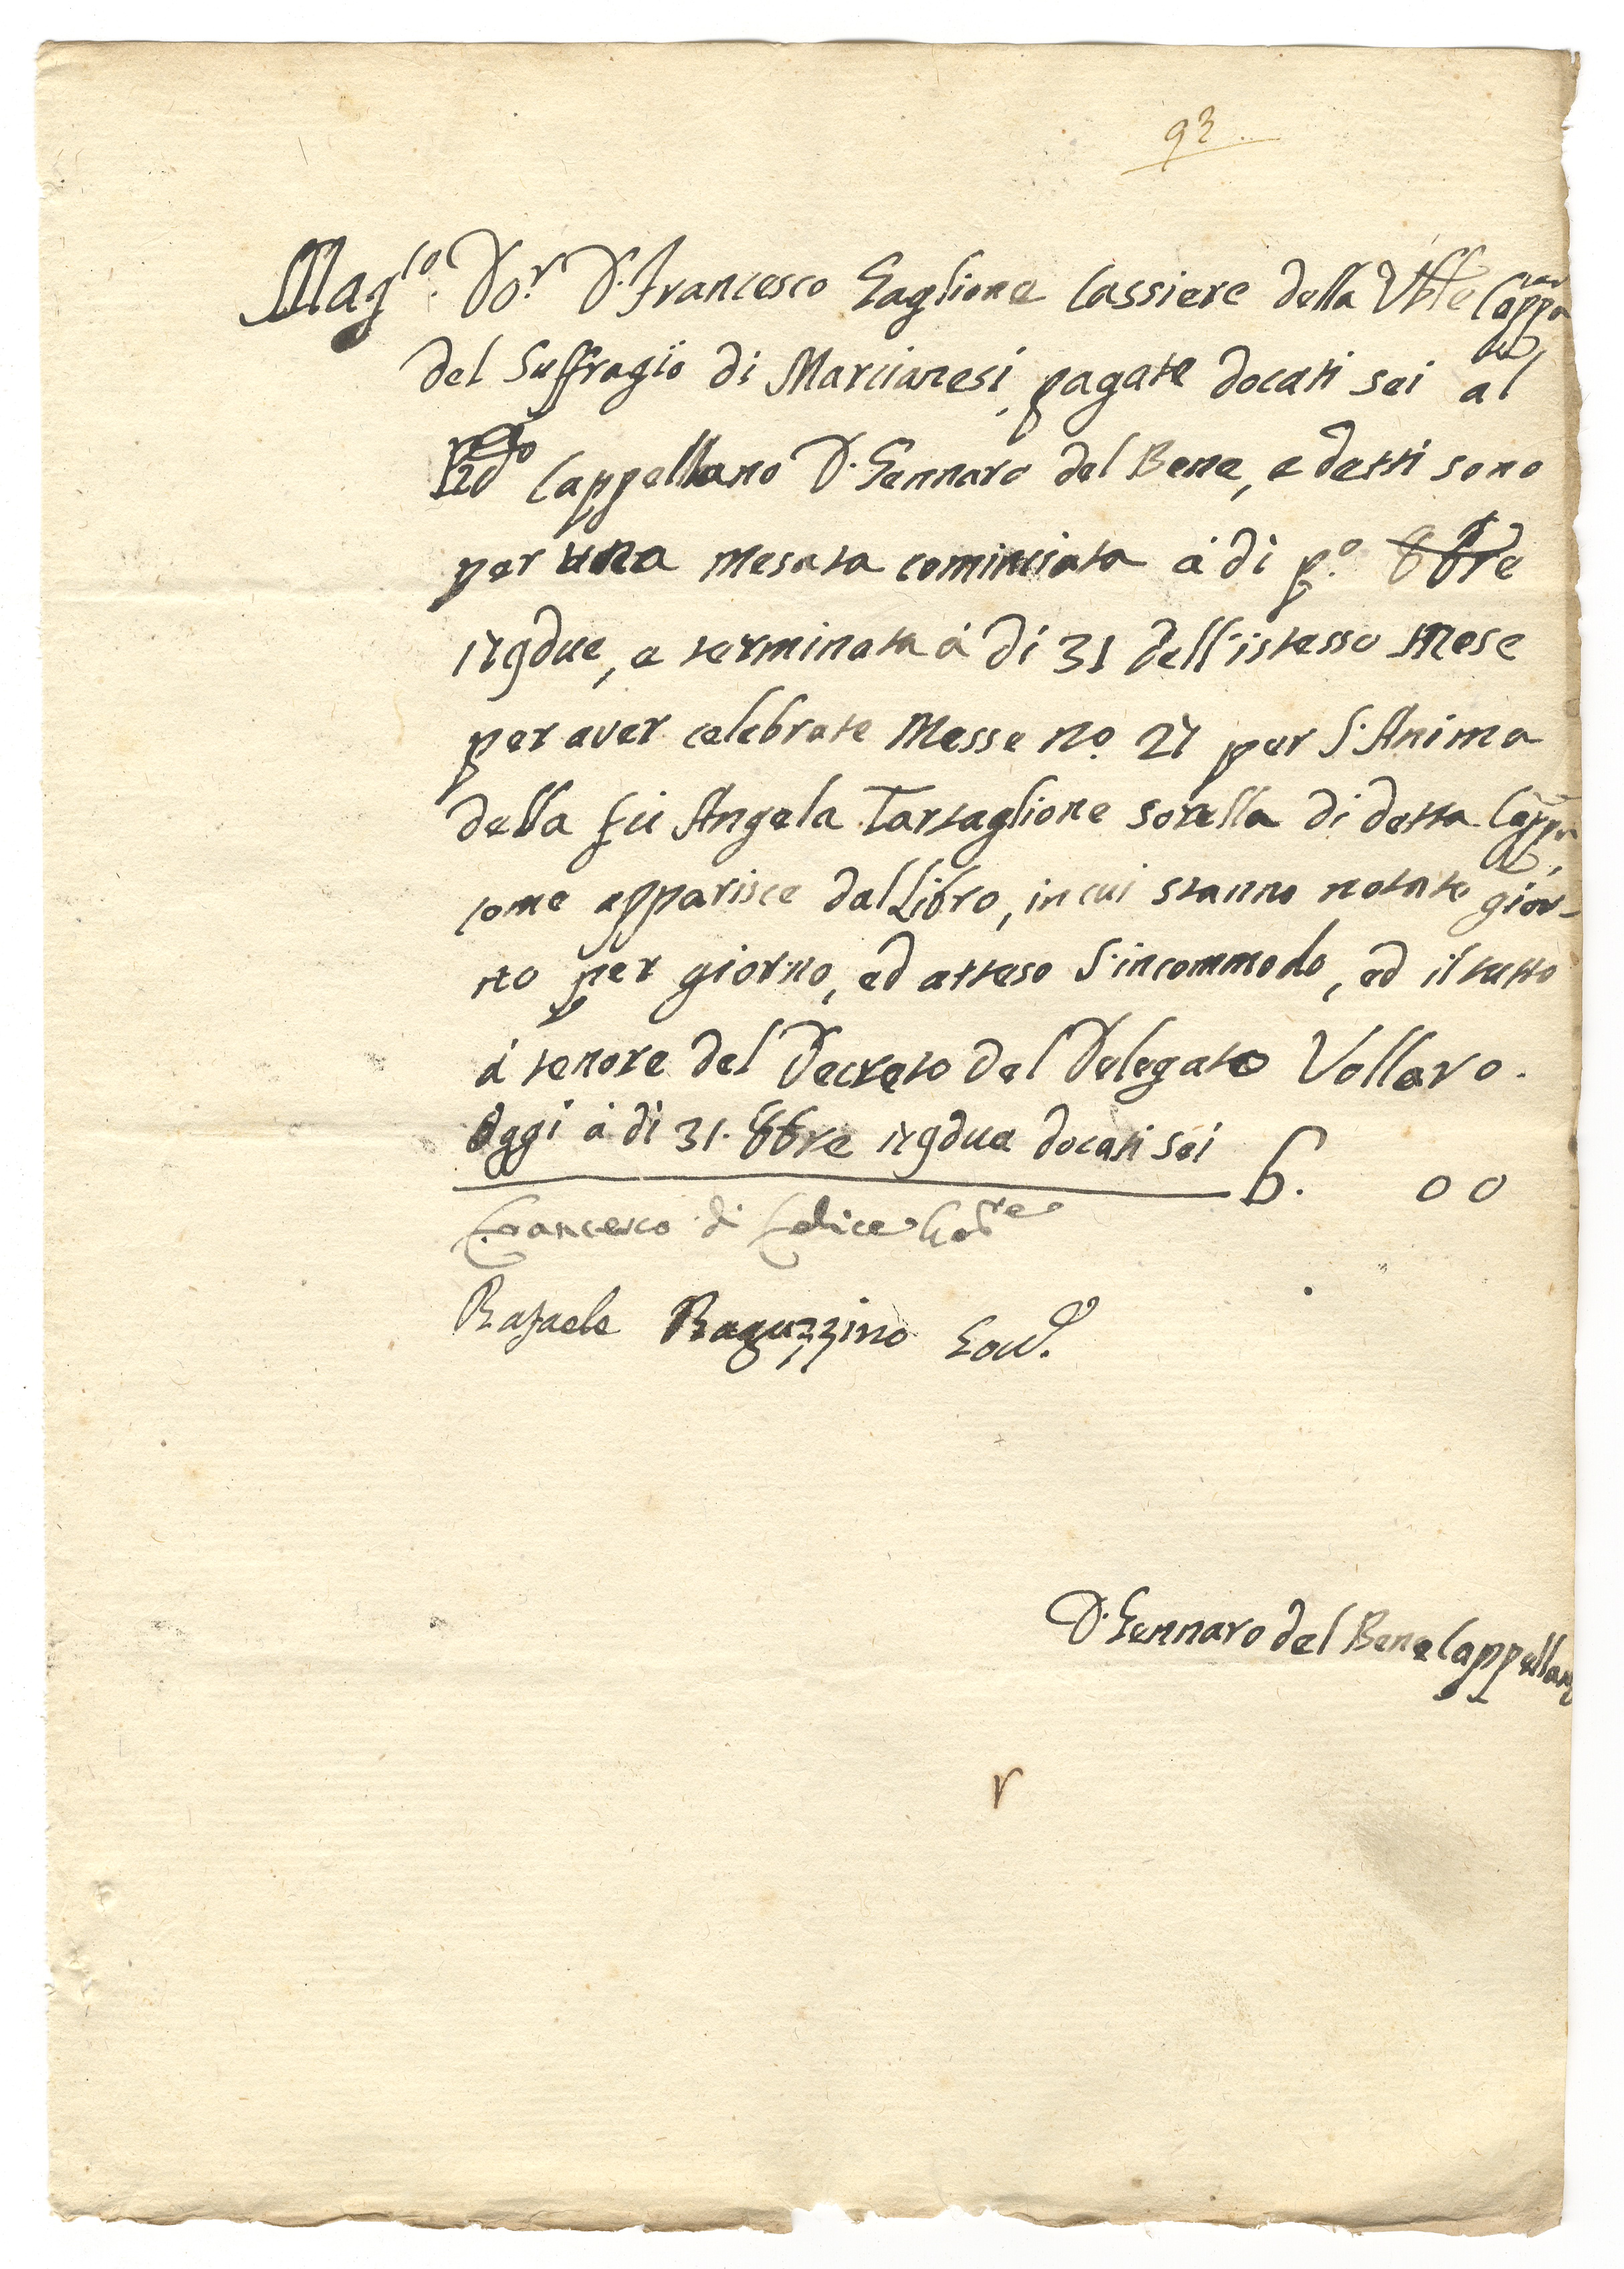 93
Mag.co Do.r D. Francesco Gaglione Cassiere della Vble Cappa
del Suffragio di Marcianesi, pagate docati sei al
Rdo Cappellano D. Gennaro del Bene, e detti sono
per una mesata cominciata à dì p.o 8bre
179due, e terminata à dì 31 dell'istesso Mese
per aver celebrate Messe no. 27 per l'Anima
della fù Angela Tartaglione sorella di detta Cappa,
come apparisce dal Libro, in cui stanno notate gior-
no per giorno, ed atteso l'incommodo, ed il tutto
à tenore del Decreto del Delegato Vollaro.
Oggi à dì 31. 8bre 179due docati sei 6. 00
Francesco di Felice Gore
Rafaele Raguzzino Gov.e
D. Gennaro del Bene Cappellano